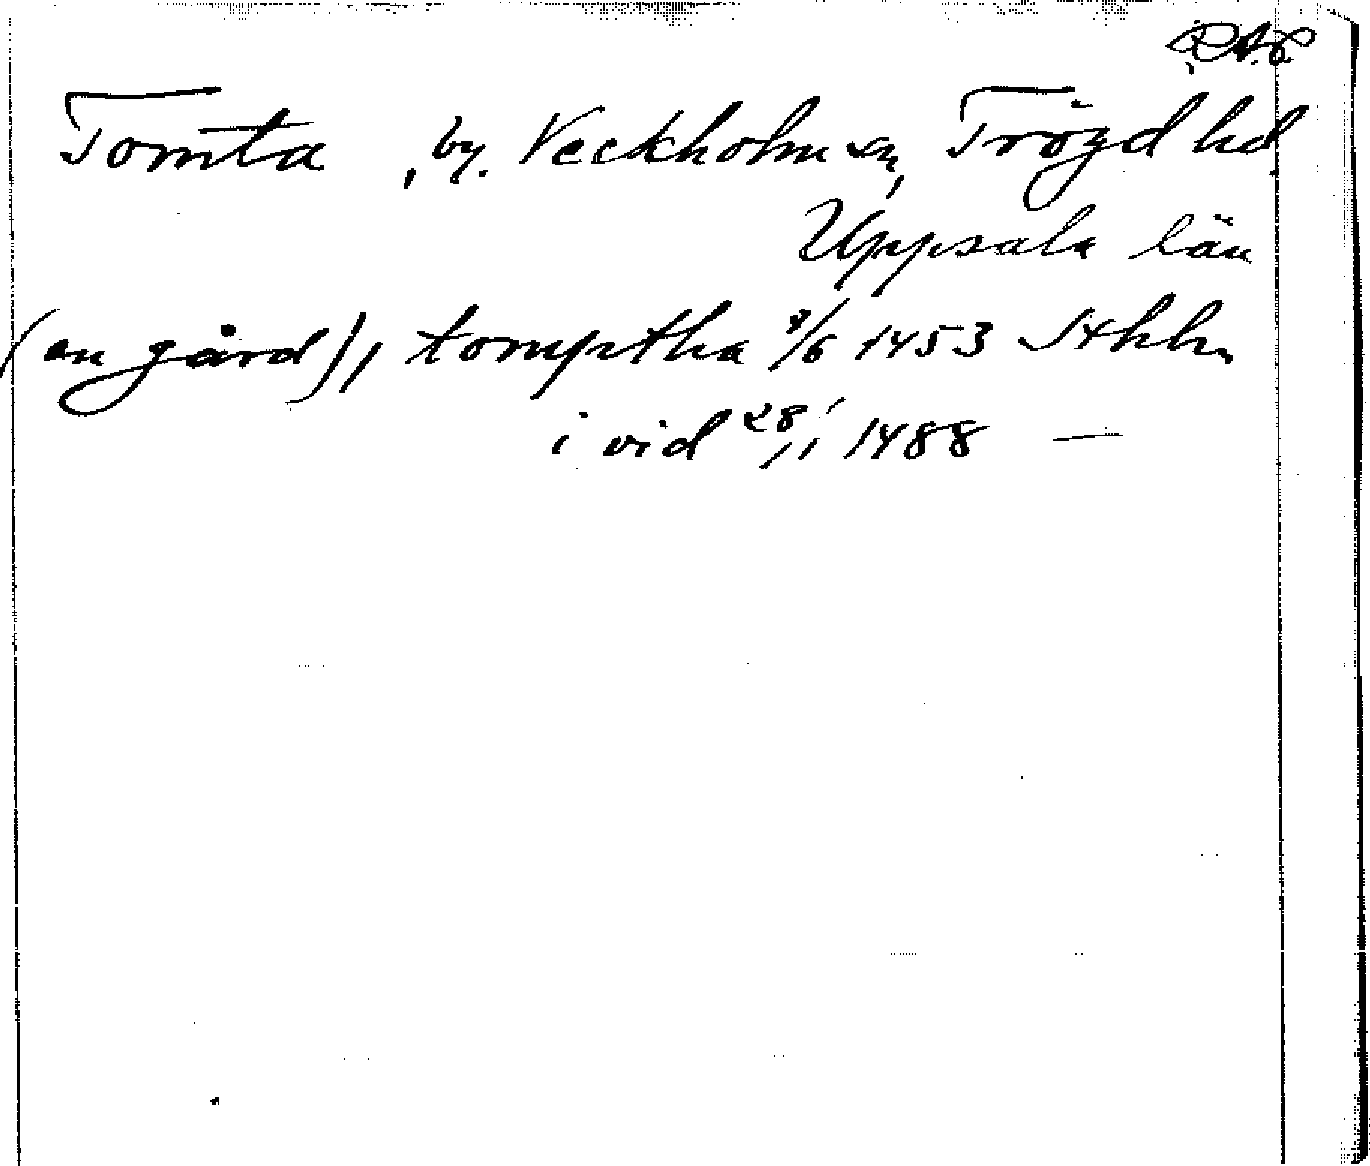 RAp
Tomta, by. Veckholm sn, Trögd hd
Uppsala län
(en gård), tomptha 8/6 1453 Sthlm
i vid 28/1 1488 —